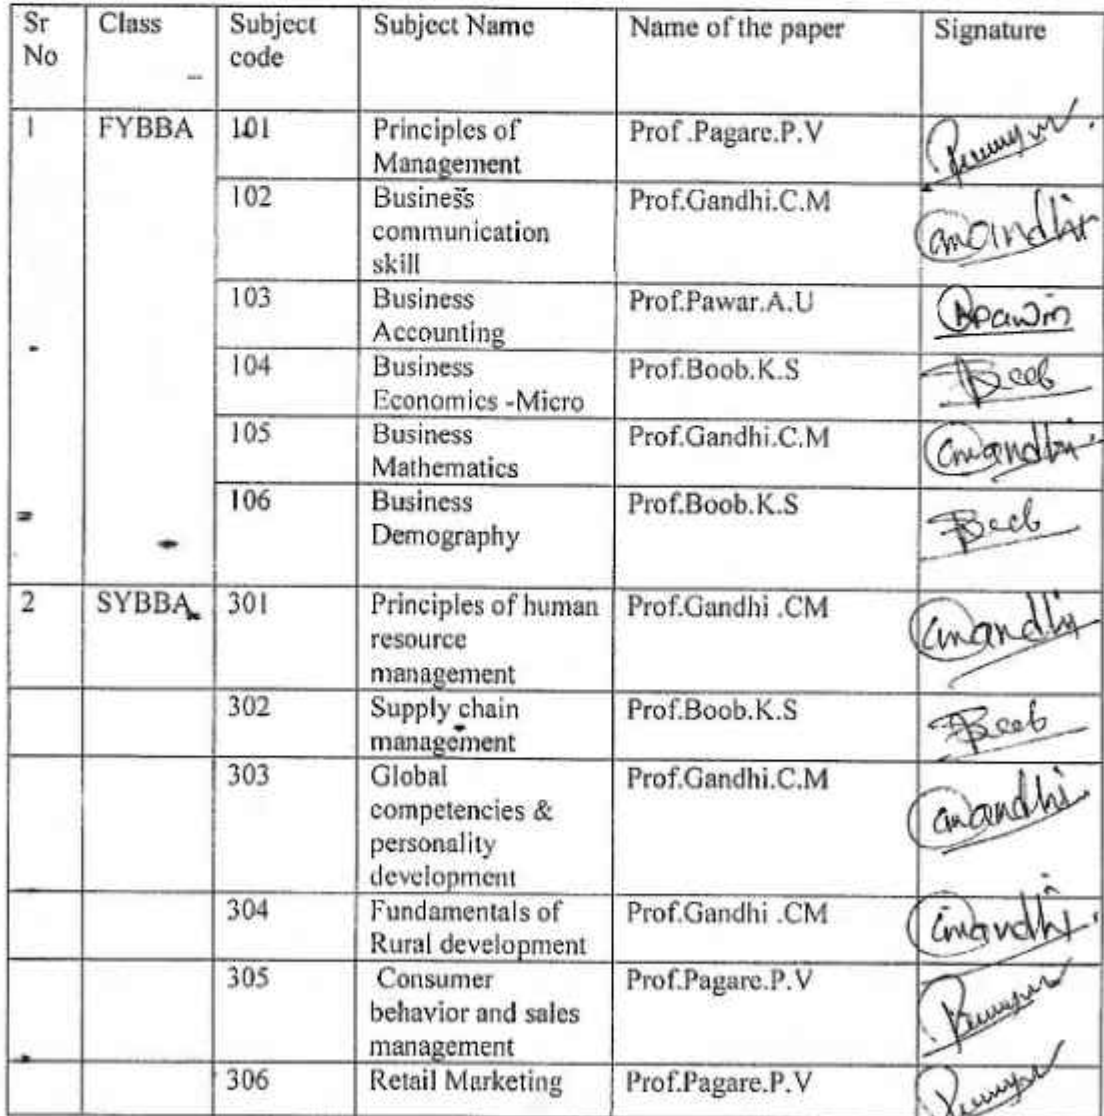 Sr No Class Subject code Subject Name Name of the paper Signature
1 FYBBA 101 Principles of Management Prof .Pagare.P.V
102 Business communication skill Prof.Gandhi.C.M
103 Business Accounting Prof.Pawar.A.U
104 Business Economics -Micro Prof.Boob.K.S
105 Business Mathematics Prof.Gandhi.C.M
106 Business Demography Prof.Boob.K.S
2 SYBBA 301 Principles of human resource management Prof.Gandhi .CM
302 Supply chain management Prof.Boob.K.S
303 Global competencies & personality development Prof.Gandhi.C.M
304 Fundamentals of Rural development Prof.Gandhi .CM
305 Consumer behavior and sales management Prof.Pagare.P.V
306 Retail Marketing Prof.Pagare.P.V